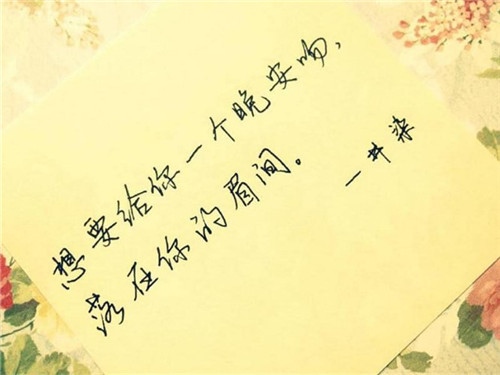 想要给你一个晚安吻，
落在你的眉间。
一井染